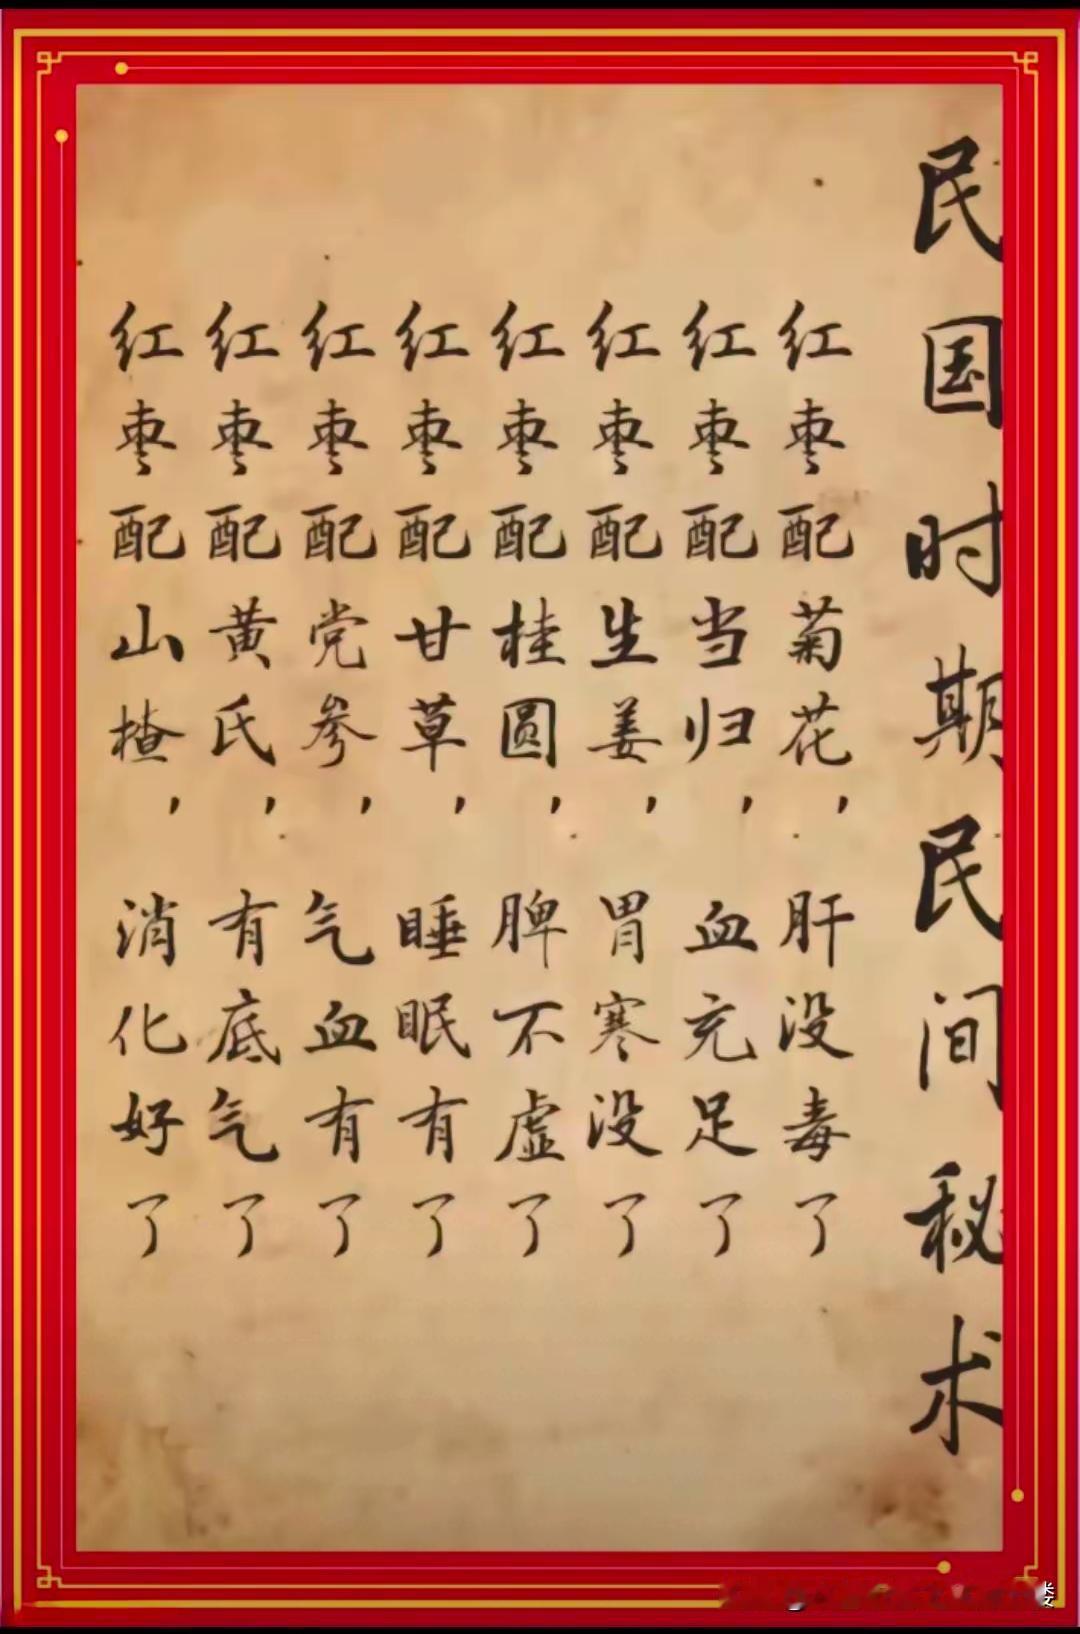 民国时期民间秘术
红枣配菊花，肝没毒了
红枣配当归，血充足了
红枣配生姜，胃寒没了
红枣配桂圆，脾不虚了
红枣配甘草，睡眠有了
红枣配党参，气血有了
红枣配黄氏，有底气了
红枣配山楂，消化好了